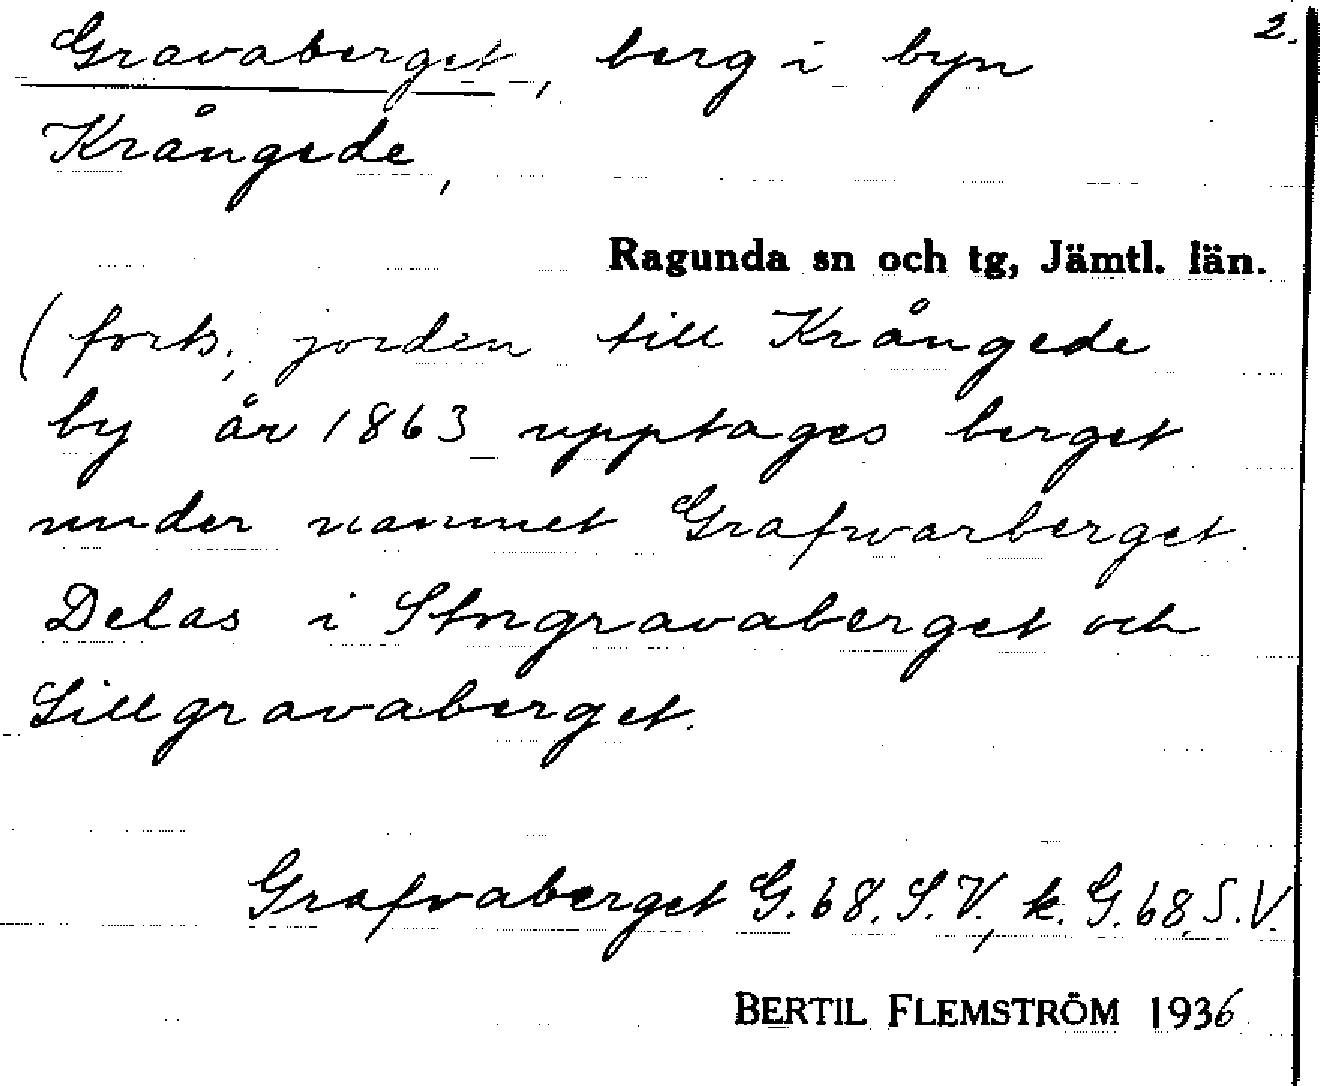 2.
Gravaberget, berg i byn
Krångede,
Ragunda sn och tg, Jämtl. län.
(forts.; jorden till Krångede
by år 1863 upptages berget
under namnet Grafvarberget.
Delas i Storgravaberget och
Lillgravaberget.
Grafvaberget G. 68. S. V., k. G. 68. S. V.
BERTIL FLEMSTRÖM 1936